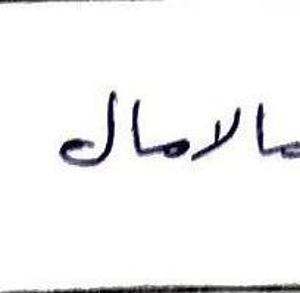 مالامال